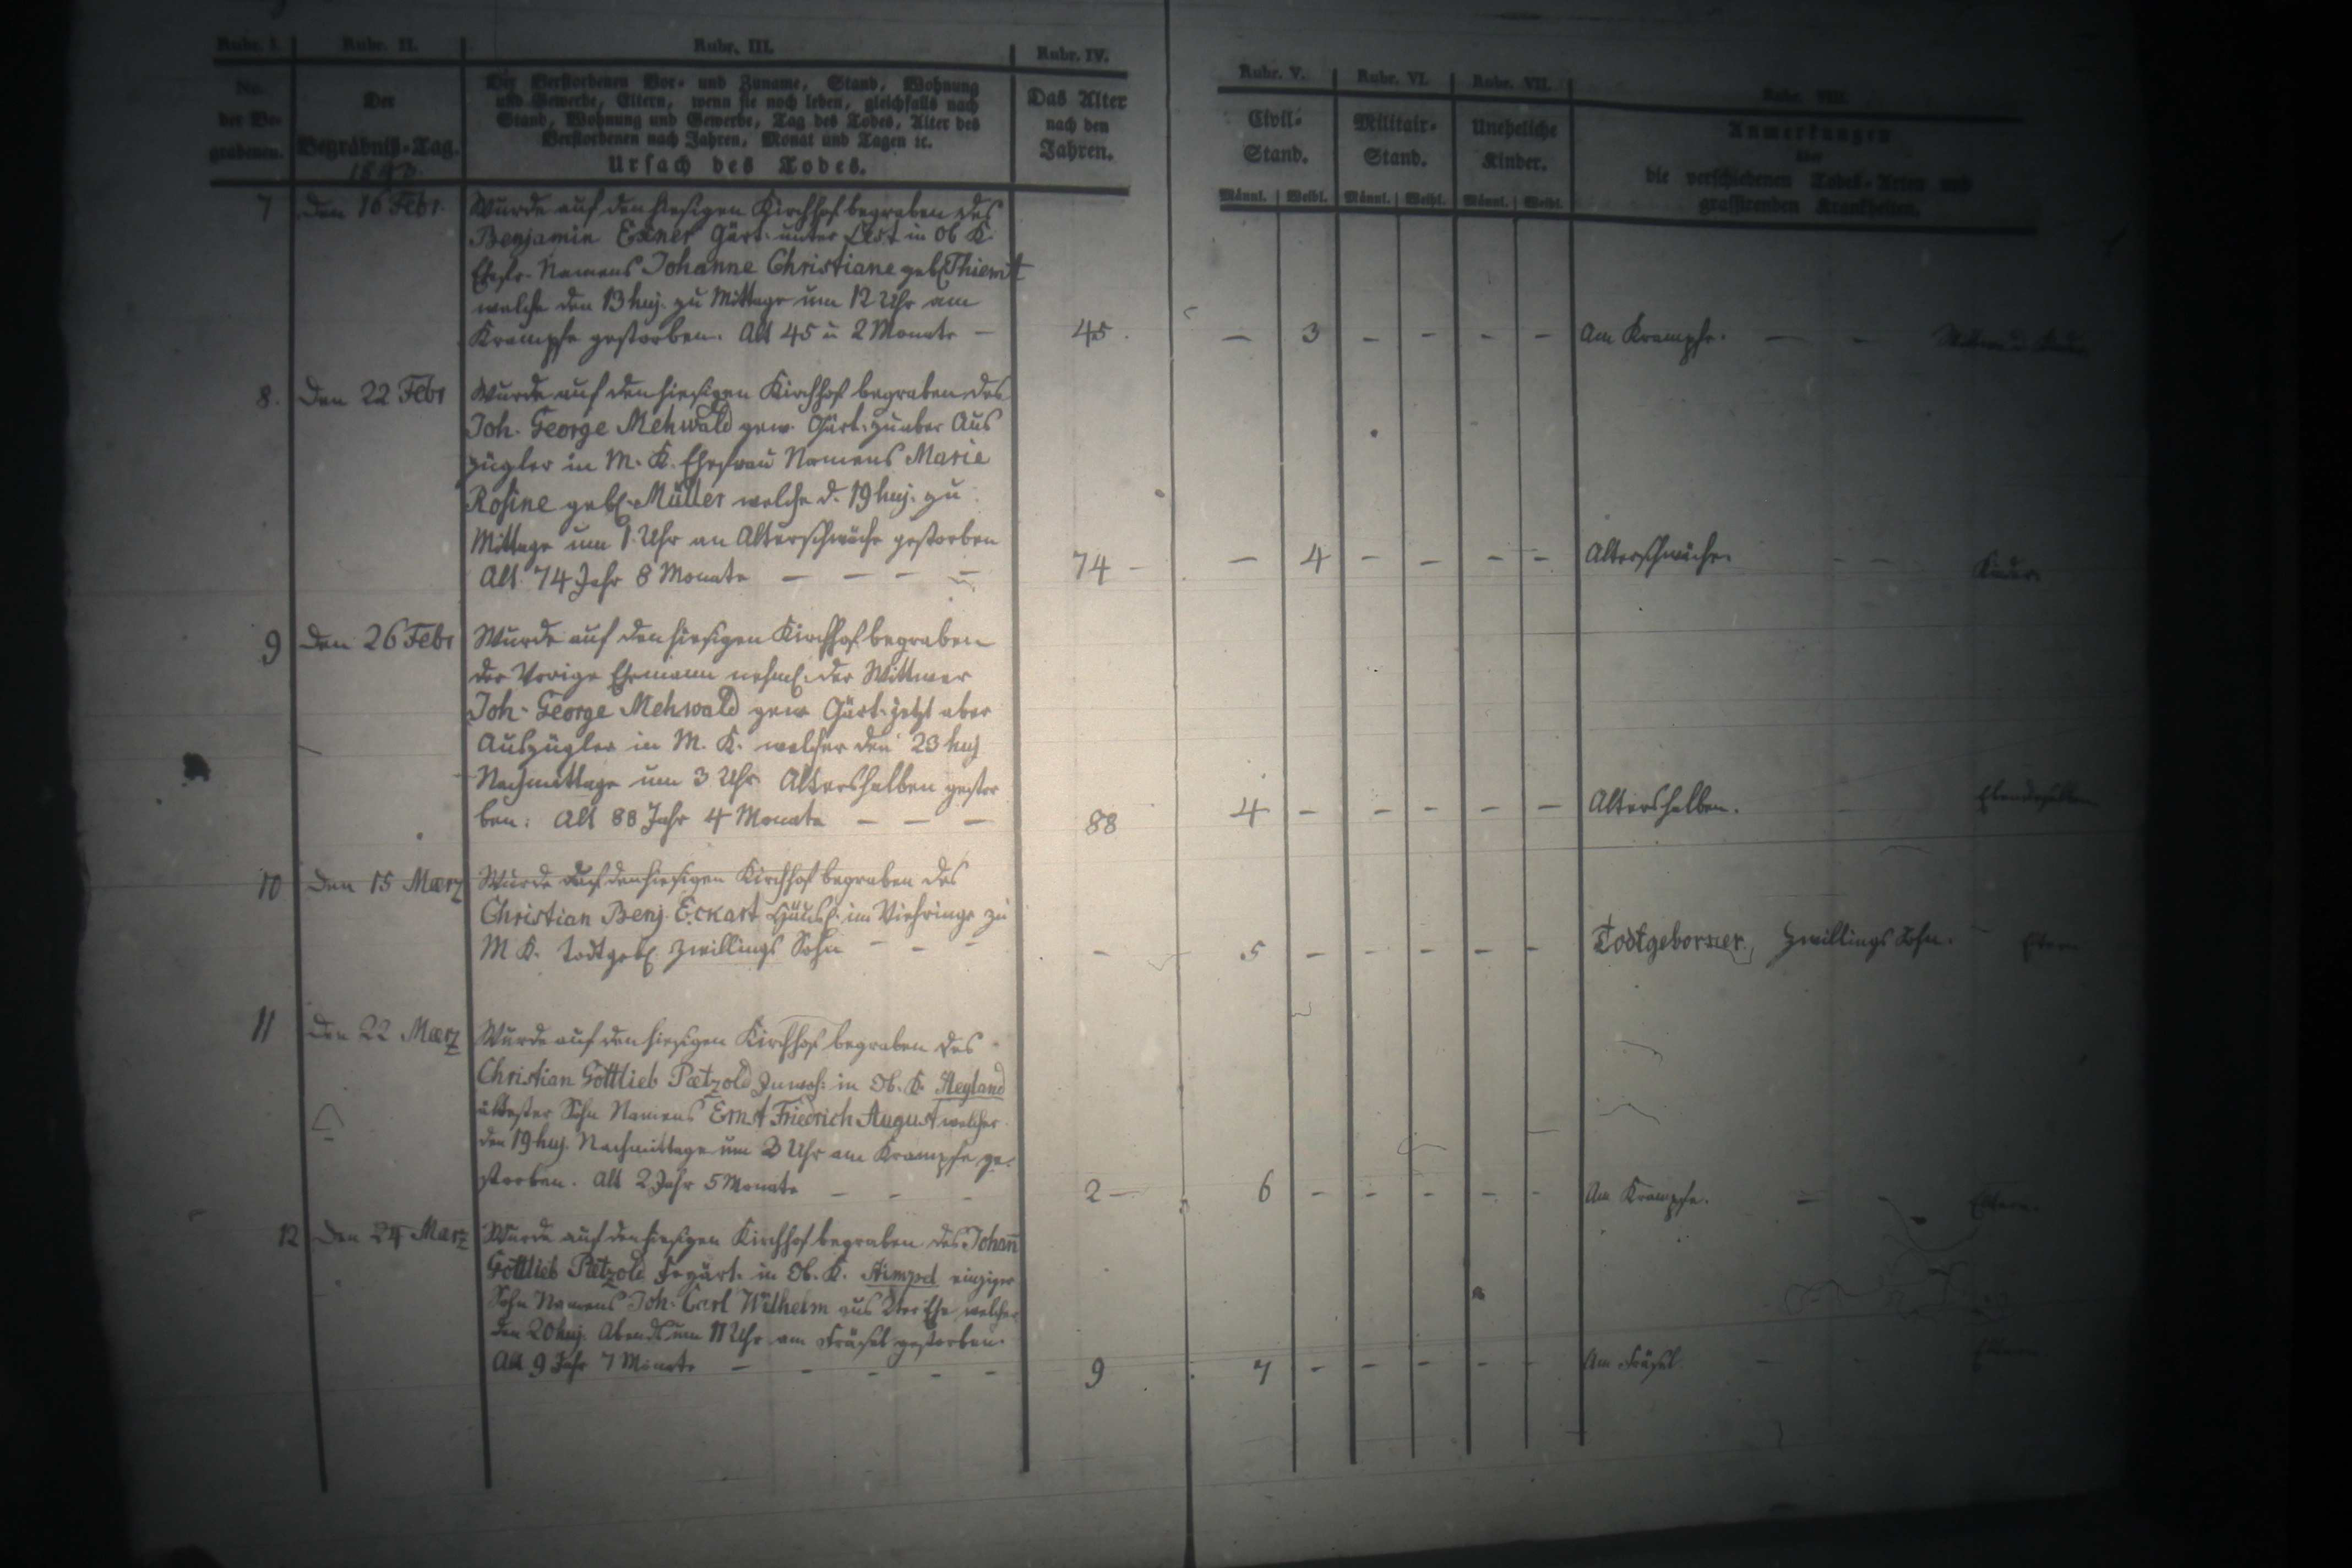 Rubr. I. Rubr. II. Rubr. III. Rubr. IV. Rubr. V. Rubr. VI. Rubr. VII. Rubr. VIII.
No. der Be-grabenen.
Der Begräbniß-Tag.
Der Verstorbenen Vor- und Zuname, Stand, Wohnung
und Gewerbe, Eltern, wenn sie noch leben, gleichfalls nach
Stand, Wohnung und Gewerbe, Tag des Todes, Alter des
Verstorbenen nach Jahren, Monat und Tagen ꝛc.
Ursach des Todes.
Das Alter
nach den
Jahren.
Civil-
Stand.
Militair-
Stand.
Uneheliche
Kinder.
Anmerkungen
über
die verschiedenen Todes-Arten und
grassirenden Krankheiten.
Männl. Weibl. Männl. Weibl. Männl. Weibl.
7 Den 16 Febr. Wurde auf den hiesigen Kirchhof begraben des
Benjamin Exner Gärt. in Ob K.
Ehefr. Namens Johanne Christiane geb. Thiemt
welche den 13 huj. zu Mittage um 12 Uhr am
Krampfe gestorben. Alt 45 u 2 Monate – 45. – 3 – – – – Am Krampfe. – –
8. Den 22 Febr Wurde auf den hiesigen Kirchhof begraben des
Joh. George Mehwald gew. Gärt. Aus
zügler in M. K. Ehefrau Namens Marie
Rosine geb. Müller welche d. 19 huj. zu
Mittage um 1 Uhr an Alterschwäche gestorben
Alt 74 Jahr 8 Monate – – – – 74 – – 4 – – – – Alterschwäche. – – Kinder.
9 Den 26 Febr Wurde auf den hiesigen Kirchhof begraben
der Vorige Ehemann nehml. der Wittwer
Joh. George Mehwald gew Gärt. jetzt aber
Auszügler in M. K. welcher den 23 huj
Nachmittage um 3 Uhr Altershalben gestor
ben. Alt 88 Jahr 4 Monate – – – 88 4 – – – – – Altershalben.
10 Den 15 Mærz Wurde auf den hiesigen Kirchhof begraben des
Christian Benj. Eckart Häusl. im Viehringe zu
M K. todtgeb. Zwillings Sohn – – – – 5 – – – – – Todtgeborner Zwillings Sohn. –
11 Den 22 Mærz Wurde auf den hiesigen Kirchhof begraben des
Christian Gottlieb Pætzold Inwoh. in Ob. K.
ältester Sohn Namens Ernst Friedrich August welcher
den 19 huj. Nachmittage um 3 Uhr am Krampfe ge-
storben. Alt 2 Jahr 5 Monate – – – 2 – 6 – – – – – Am Krampfe. – – Eltern.
12 Den 24 Mærz Wurde auf den hiesigen Kirchhof begraben des Johañ
Gottlieb Pætzold in Ob. K. einziger
Sohn Namens Joh. Carl Wilhelm aus 2ter Ehe welcher
den 20 huj. Abends um 11 Uhr am gestorben.
Alt 9 Jahr 7 Monate – – – – – 9 7 – – – – – Am – – Eltern